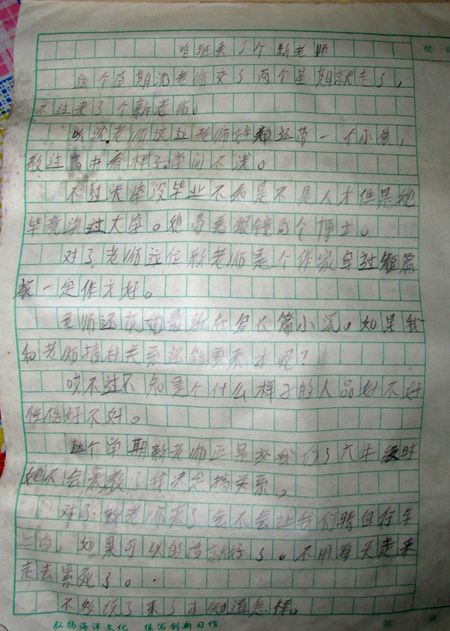 哈班来了个新老师
这个学期沈老师交了两个星期就走了,
不过来了个新老师。
听沈老师说这老师姓 还带一个小孩,
教过高中看样子学问不浅。
不过大学没毕业不知是不是人才但是她
毕竟读过大学。她带着眼镜向个博士。
对了老师这位新老师是个作家写过短篇
一定作文好。
老师还说她最近在写长篇小说。如果我
和老师搞好关系还能要来本呢?
哎不过不知是个什么样子的人品好不好
性格好不好。
这个学期新老师正是教我们了六年级时
她不会来教了我决定搞关系。
对了!新老师来了会不会让我们骑自行车
上学,如果可以的话就好了。不用每天走来
走去累死了。
不 说了来了才知道怎样。
弘扬海洋文化 练写创新习作